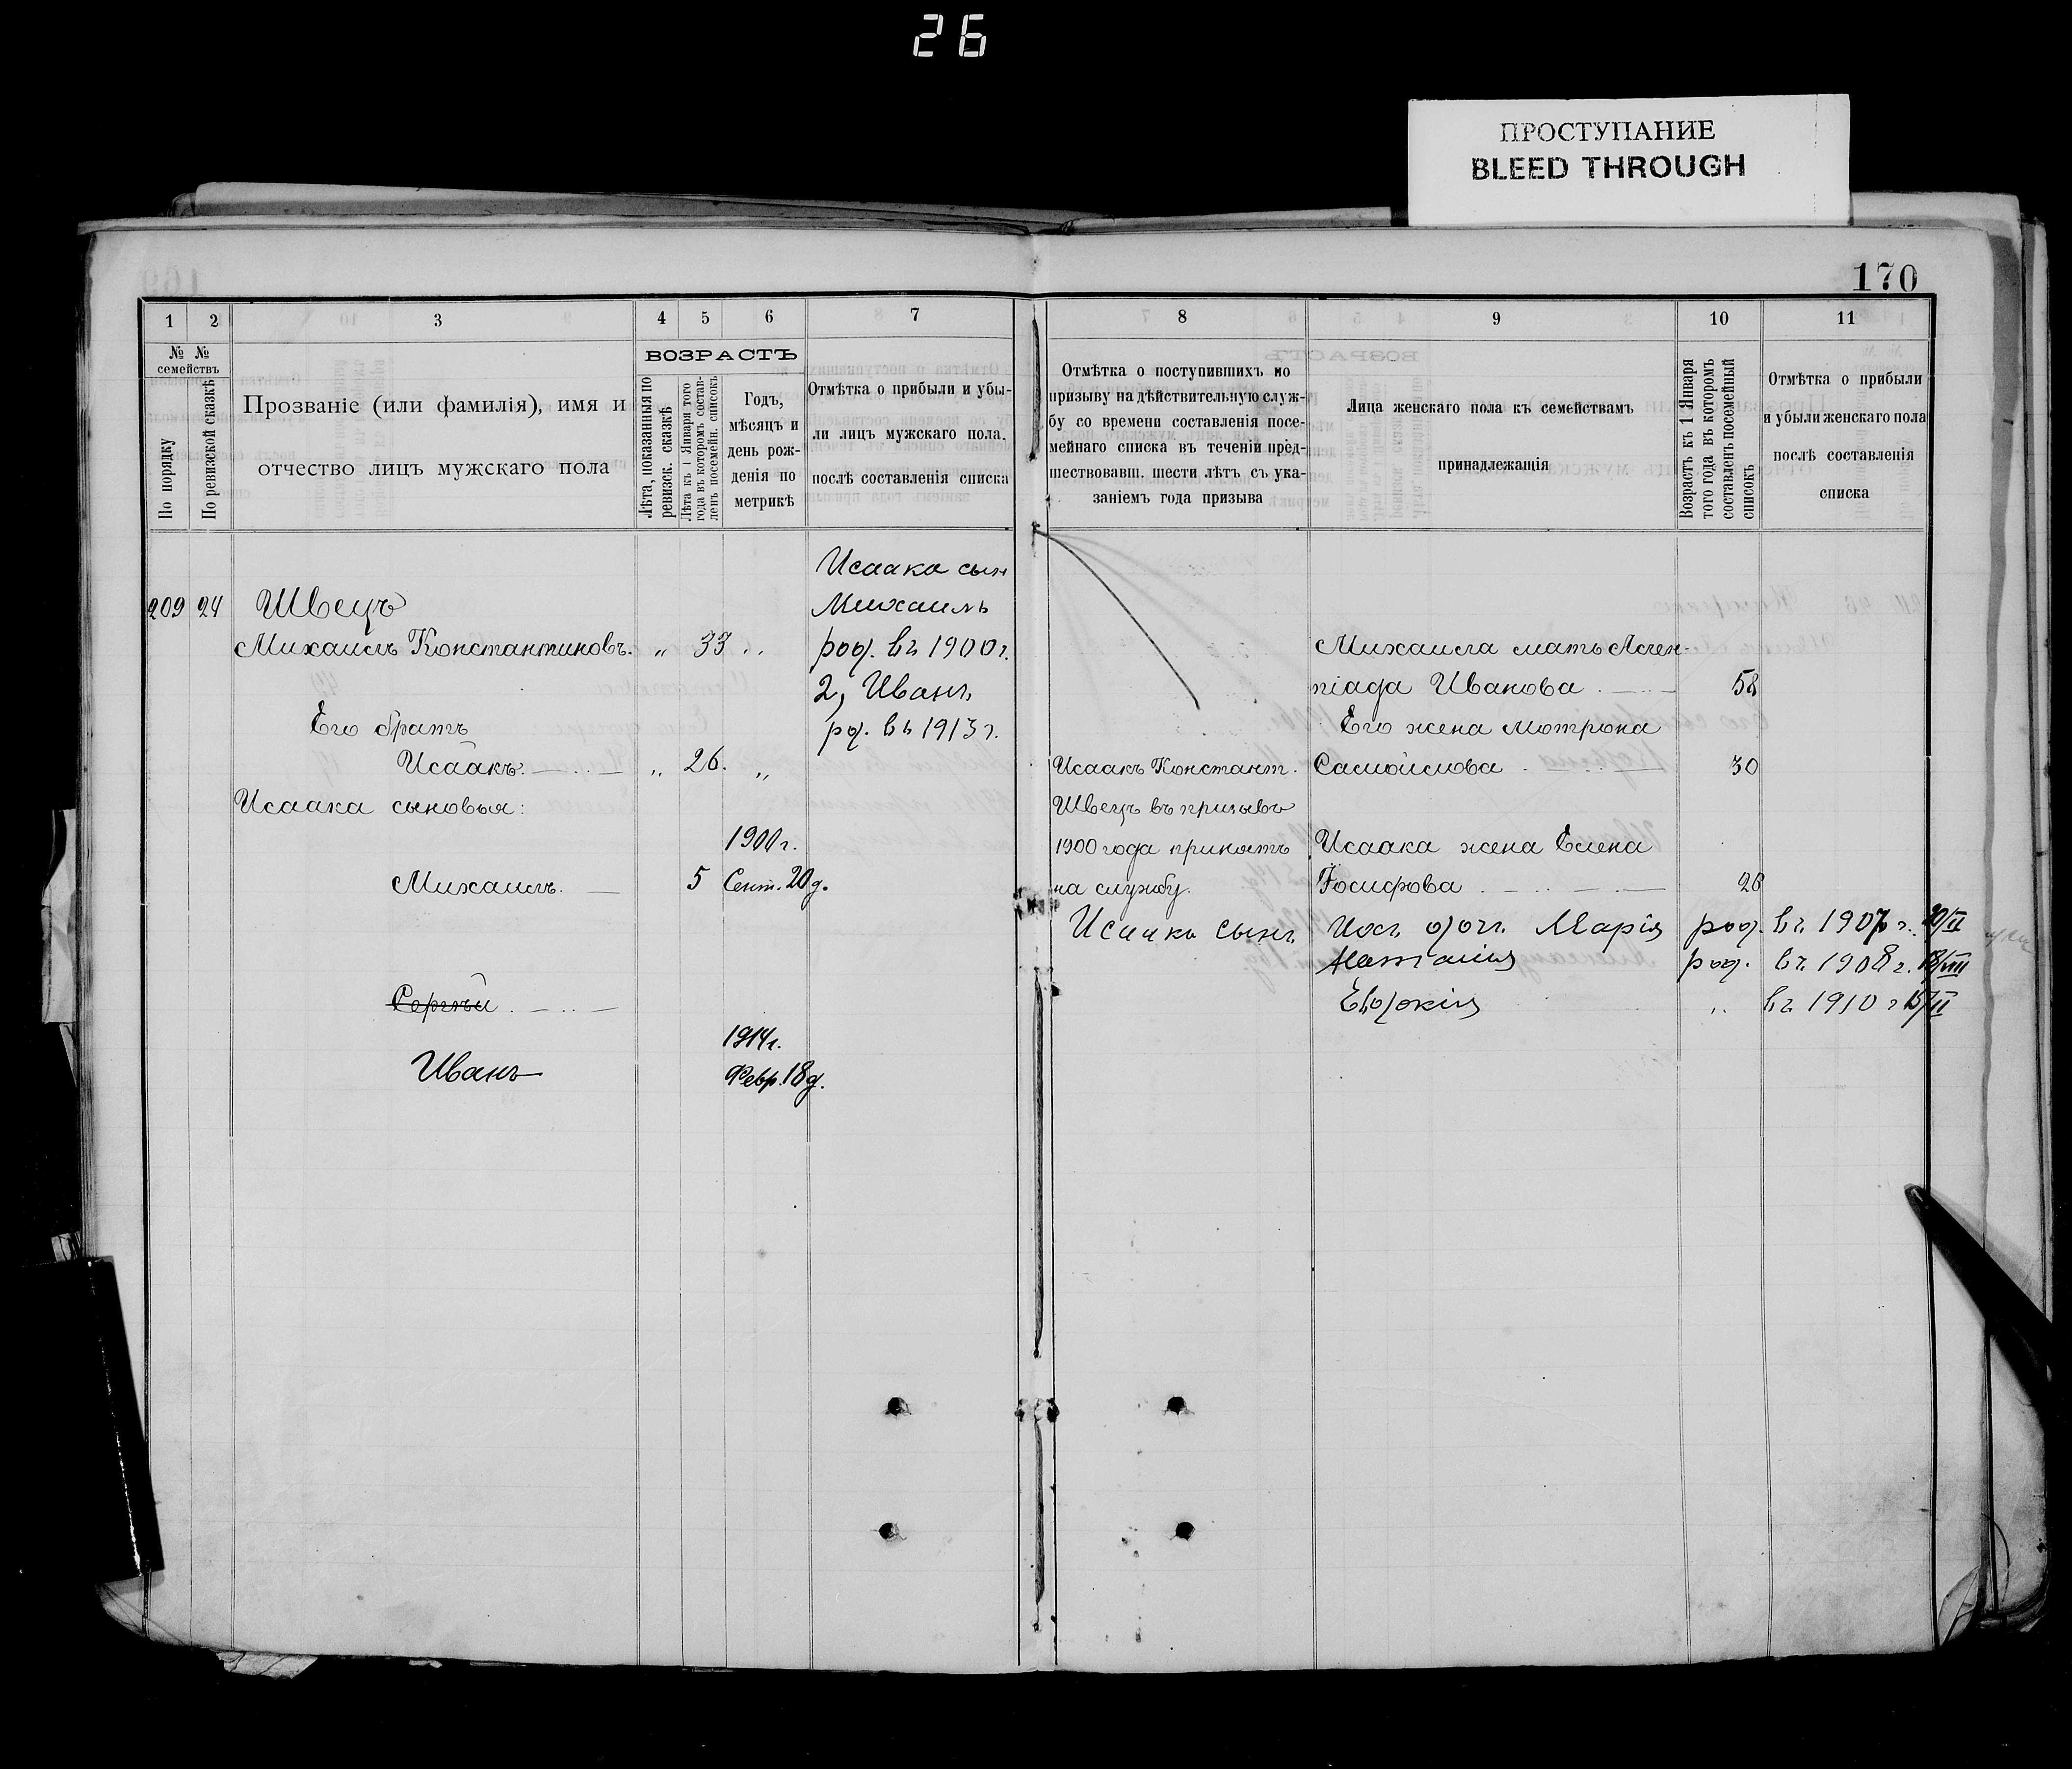 26
ПРОСТУПАНИЕ
BLEED THROUGH
170
1 2 3 4 5 6 7 8 9 10 11
№ № семействъ
По порядку
По ревизской сказкѣ
Прозваніе (или фамилія), имя и
отчество лицъ мужскаго пола
ВОЗРАСТЪ
Лѣта, показанныя по
ревизск. сказкѣ
Лѣта къ 1 Января того
года въ которомъ состав-
ленъ посемейн. списокъ
Годъ,
мѣсяцъ и
день рож-
денія по
метрикѣ
Отмѣтка о прибыли и убы-
ли лицъ мужскаго пола.
послѣ составленія списка
Отмѣтка о поступившихъ по
призыву на дѣйствительную служ-
бу со времени составленія посе-
мейнаго списка въ теченіи пред-
шествовавш. шести лѣтъ съ ука-
заніемъ года призыва
Лица женскаго пола къ семействамъ
принадлежащія
Возрастъ къ 1 Января
того года въ которомъ
составленъ посемейный
списокъ
Отмѣтка о прибыли
и убыли женскаго пола
послѣ составленія
списка
Исаака сын
209 24 Швецъ Михаилъ
Михаилъ Константиновъ. „ 33 „ род. въ 1900 г. Михаила мать
2, Иванъ Иванова 58
Его братъ род. въ 1913 г. Его жена Мотрона
Исаакъ. „ 26. „ Исаакъ Констант. Самойлова 30
Исаака сыновья: Швецъ въ призывъ
1900 г. 1900 года принятъ Исаака жена Елена
Михаилъ. 5 Сент. 20 д. на службу. Іосифова 26
Исаака сынъ Ихъ доч. Марія род. въ 1907 г. 20/II
Наталия род. въ 1908 г. 18/VIII
Сергѣй Евдокія „ въ 1910 г 15/II
1914 г.
Иванъ Февр. 18 д.